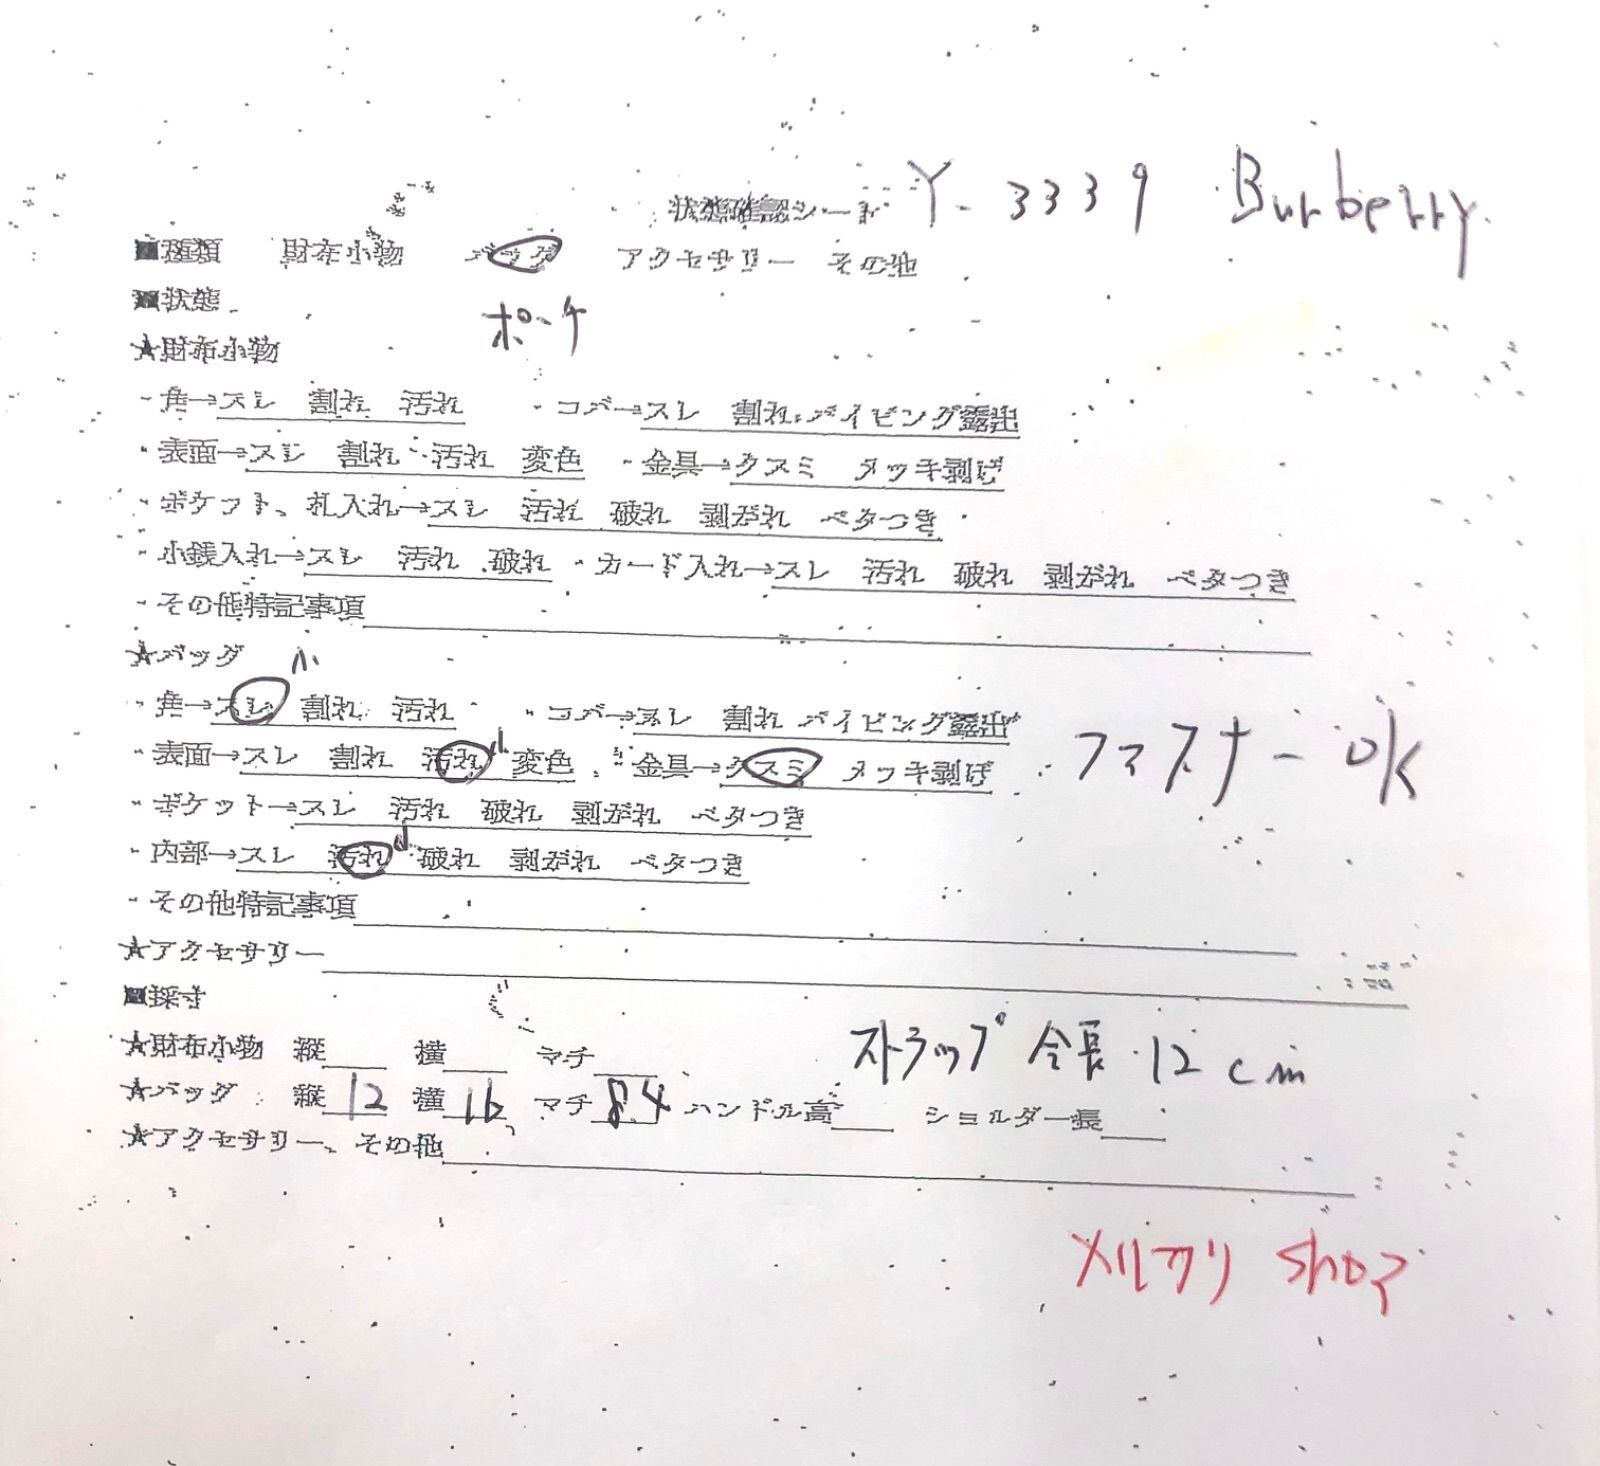 状態確認シート Y-3339 Burberry
■種類 財布小物 バッグ アクセサリー その他
■状態
ポーチ
★財布小物
・角→スレ 割れ 汚れ ・コバ→スレ 割れ パイピング露出
・表面→スレ 割れ 汚れ 変色 ・金具→クスミ メッキ剥げ
・ポケット、札入れ→スレ 汚れ 破れ 剥がれ ベタつき
・小銭入れ→スレ 汚れ 破れ ・カード入れ→スレ 汚れ 破れ 剥がれ ベタつき
・その他特記事項
★バッグ 小
・角→スレ 割れ 汚れ ・コバ→スレ 割れ パイピング露出
・表面→スレ 割れ 汚れ 小 変色 ・金具→クスミ メッキ剥げ ファスナーOK
・ポケット→スレ 汚れ 破れ 剥がれ ベタつき
・内部→スレ 汚れ 小 破れ 剥がれ ベタつき
・その他特記事項
★アクセサリー
■採寸
★財布小物 縦 横 マチ ストラップ全長12cm
★バッグ 縦12 横16 マチ8.4 ハンドル高 ショルダー長
★アクセサリー、その他
メルカリ shop